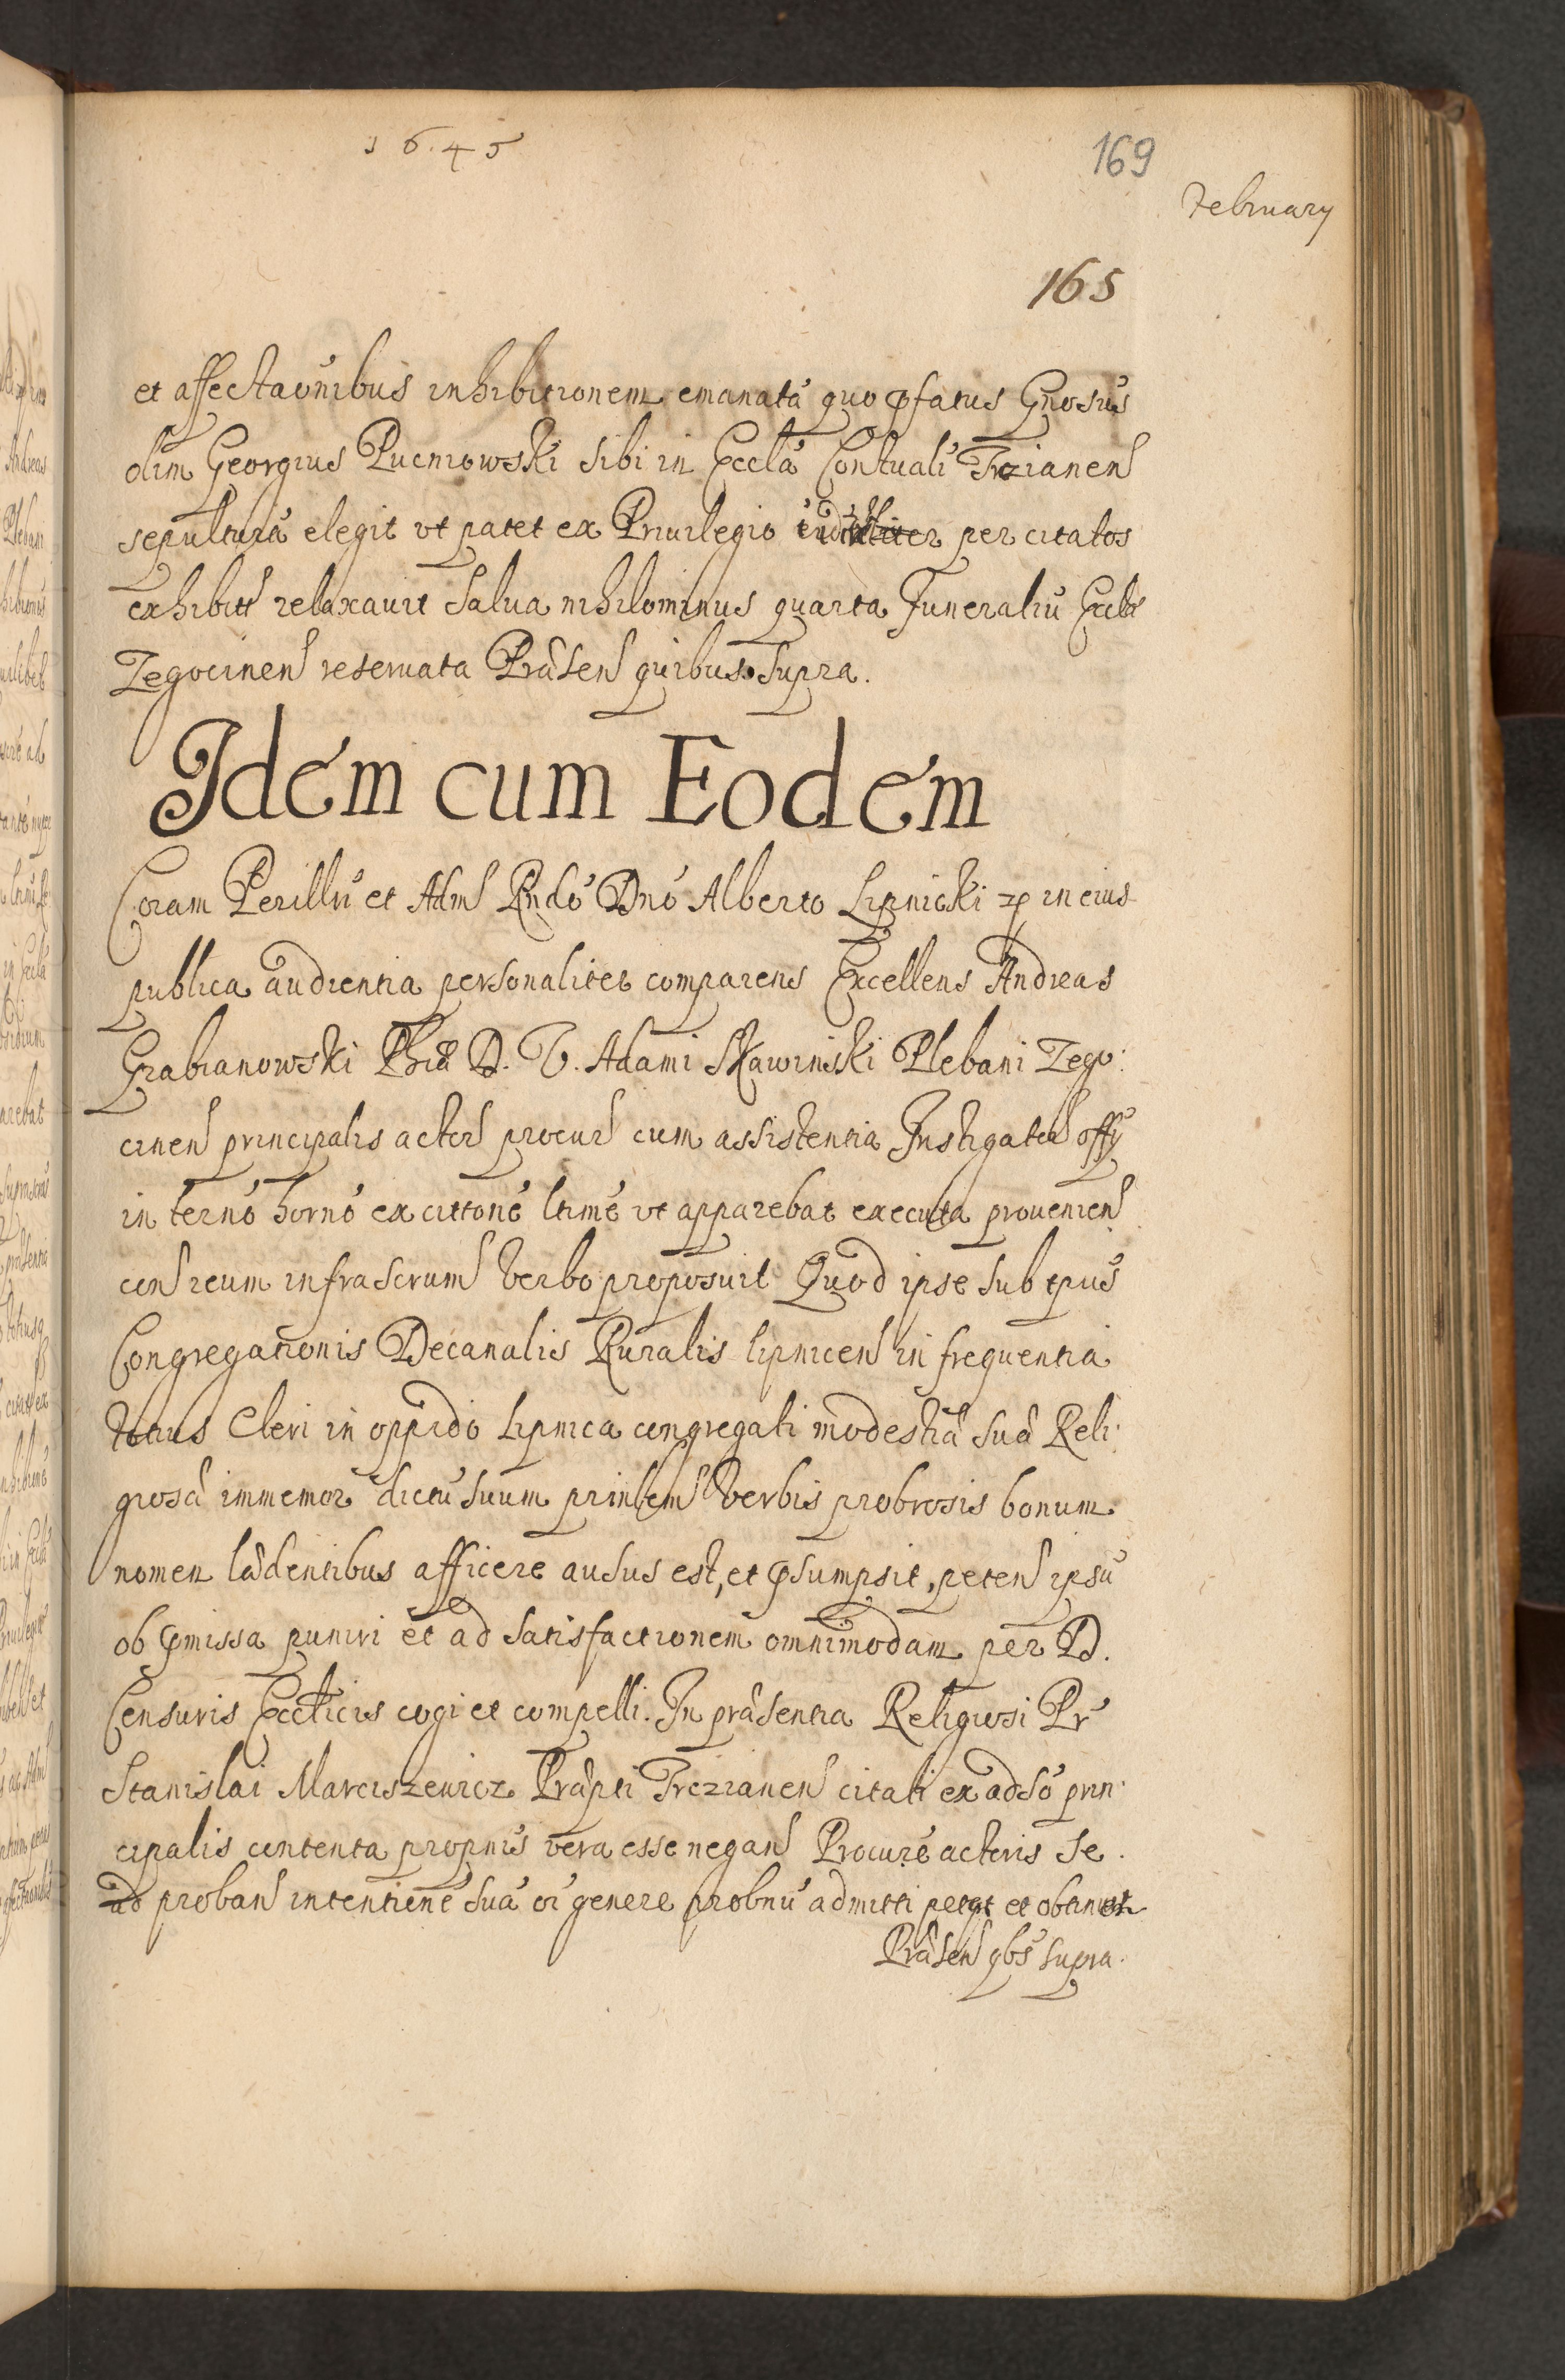 1645
169
February
165
et affectaõnibus inhibitionem emanatã quo pfatus Gnosus
olim Georgius Pucniowski sibi in Ecclã Conŭali Trzcianen
sepulturã elegit vt patet ex Priuilegio per citatos
exhibit relaxauit salua nihilominus quarta Funeraliũ Ecclæ
Zegocinen reseruata Præsen quibus supra.
Idem cum Eodem
Coram Perillri et Adm Rndo Dno Alberto Lipnicki etc in eius
publica audientia personaliter comparens Excellens Andreas
Grabianowski Phiæ D. V. Adami Skawinski Plebani Zego:
cinen principalis actor procur cum assistentia Instigator offy
in termo horno ex cittone ltime vt apparebat executa prouenien
con reum infrascrum verbo proposuit Quod ipse sub tpus
Congregationis Decanalis Ruralis lipnicen in frequentia
totius Cleri in oppido Lipnica congregati modestiæ suæ Reli:
giosæ immemor dictũ suum prinlem verbis probrosis bonum
nomen lædentibus afficere ausus est, et psumpsit, peten ipsũ
ob pmissa puniri et ad satisfactionem omnimodam per D.
Censuris Ecclicis cogi et compelli. In præsentia Religiosi Pr
Stanislai Marciszewicz Præpti Trzcianen citati ex adso prin:
cipalis contenta propnis vera esse negan Procure actoris se
ad proban intentione suã oi genere probnũ admitti petyt et obtinuit
Præsen qbs supra.